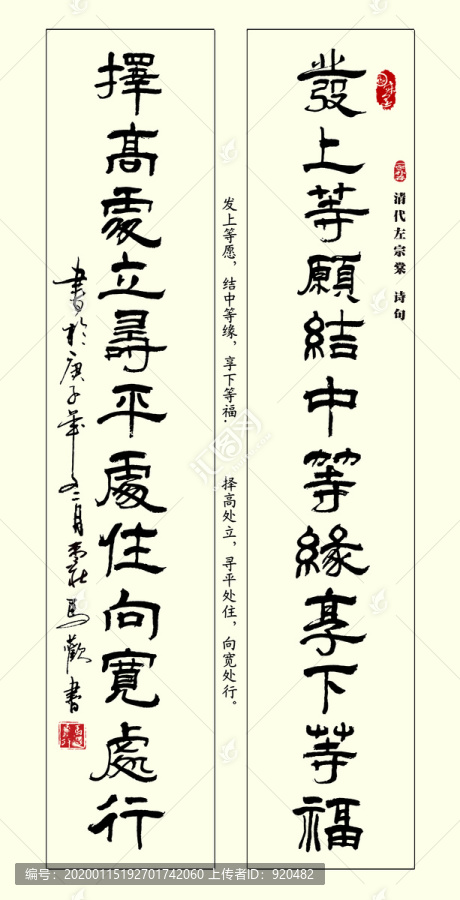 發上等願結中等緣享下等福
清代左宗棠 诗句
发上等愿，结中等缘，享下等福.
择高处立，寻平处住，向宽处行。
擇高處立尋平處住向寬處行
書於庚子年
月
馬歡書
汇图网
编号：20200115192701742060 上传者ID：920482